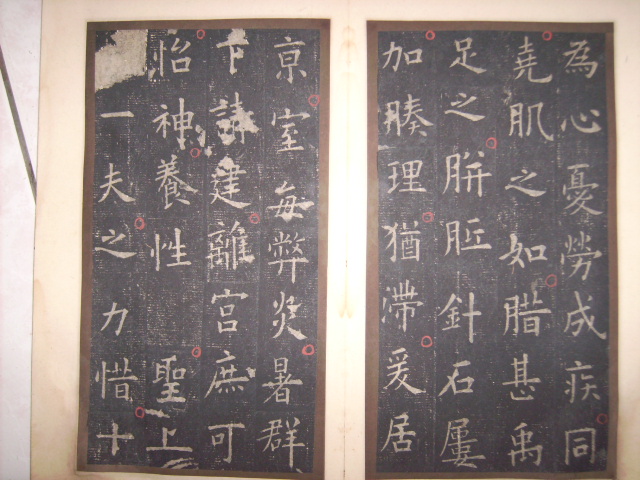 為心憂勞成疾同
堯肌之如腊甚禹
足之胼胝針石屢
加腠理猶滯爰居
京室每弊炎暑群
下請建離宮庶可
怡神養性聖上
一夫之力惜十